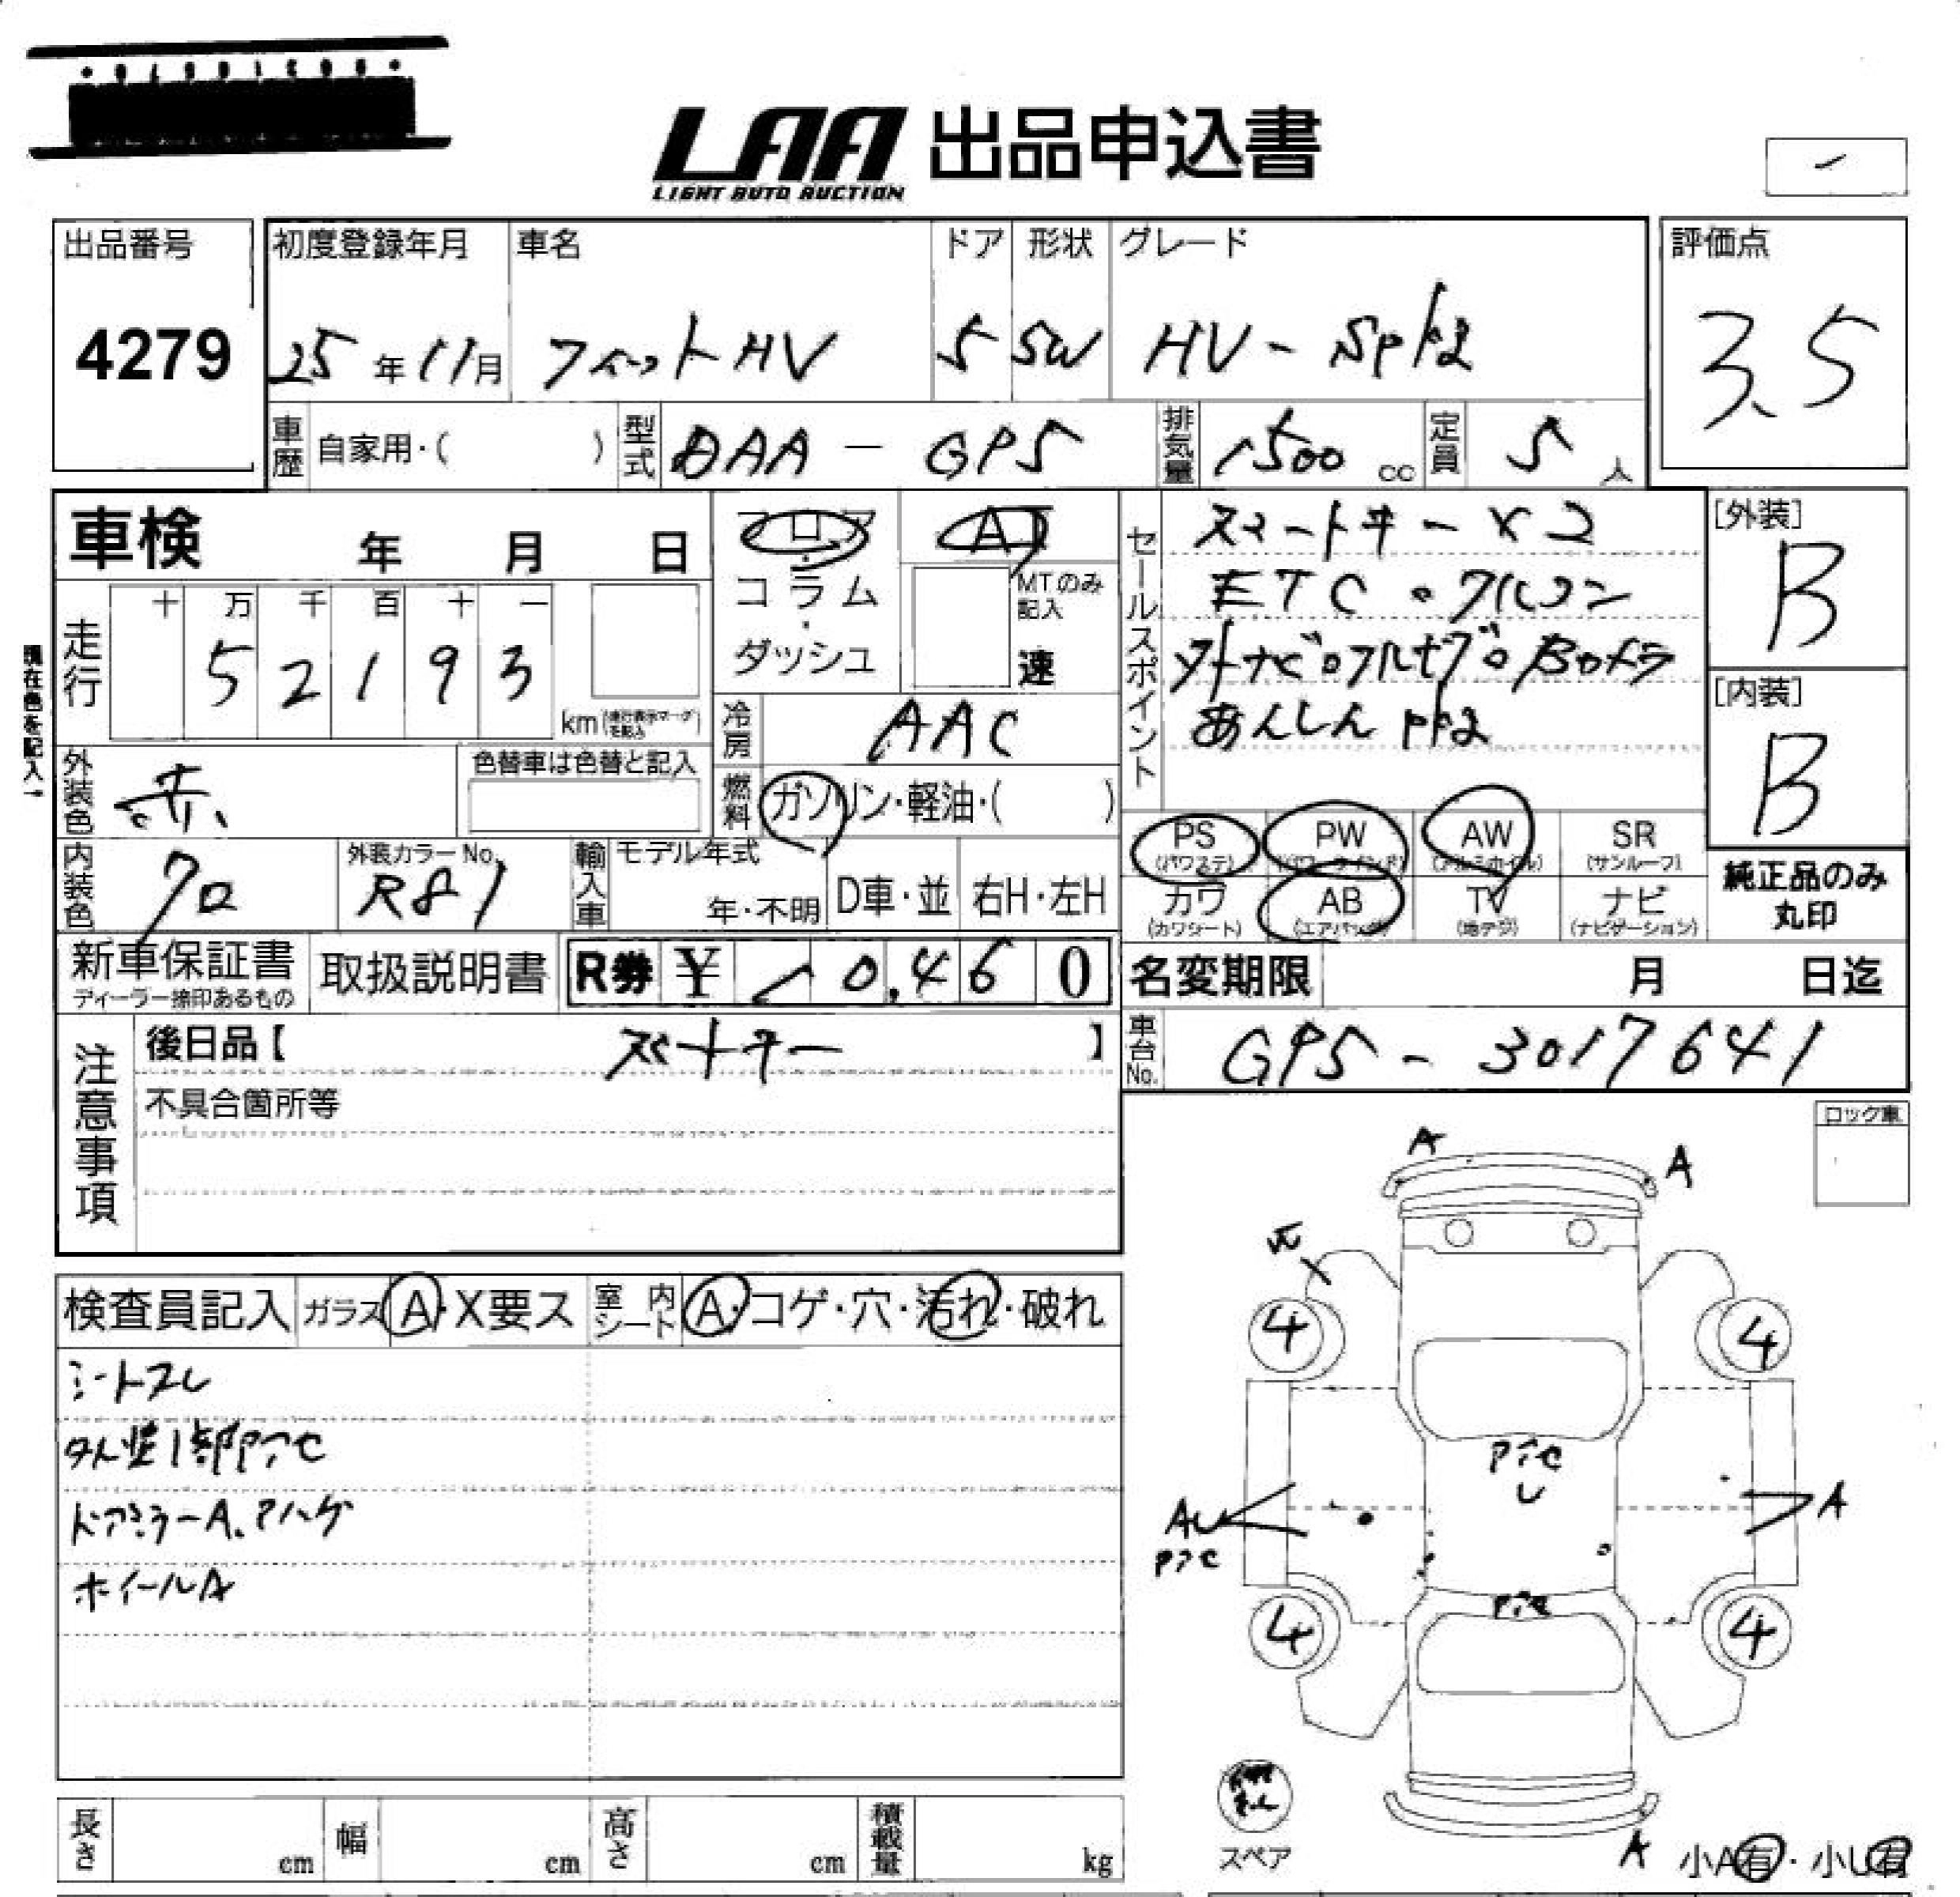 LAA 出品申込書
LIGHT AUTO AUCTION
出品番号
4279
初度登録年月
25年11月
車名
フィットHV
ドア
5
形状
SW
グレード
HV-Spkg
評価点
3.5
車歴 自家用・( )
型式 DAA-GP5
排気量 1500 cc
定員 5人
車検 年 月 日
フロア・コラム・ダッシュ
AT
MTのみ記入
速
現在色を記入→
走行
十 万 千 百 十 一
5 2 1 9 3
km(走行表示マークを記入)
冷房 AAC
外装色 赤
色替車は色替と記入
燃料 ガソリン・軽油・( )
内装色 クロ
外装カラーNo. R81
輸入車 モデル年式 年・不明
D車・並 右H・左H
セールスポイント
スマートキー×2
ETC・クルコン
外ナビ。フルセグ。Bカメラ
あんしんpkg
[外装]
B
[内装]
B
PS (パワステ)
PW (パワーウインド)
AW (アルミホイル)
SR (サンルーフ)
カワ (カワシート)
AB (エアバッグ)
TV (地デジ)
ナビ (ナビゲーション)
純正品のみ
丸印
新車保証書
ディーラー捺印あるもの
取扱説明書
R券 ¥ 10,460
名変期限 月 日迄
車台No. GP5-3017641
注意事項
後日品【 スマートキー 】
不具合箇所等
ロック車
検査員記入
ガラス A・X要ス
室内シート A・コゲ・穴・汚れ・破れ
シートスレ
外装1部アトC
ドアミラーA.アハゲ
ホイールA
A
A
4
4
U
AU
A
4
4
スペア
A
小A有・小U有
長さ cm
幅 cm
高さ cm
積載量 kg